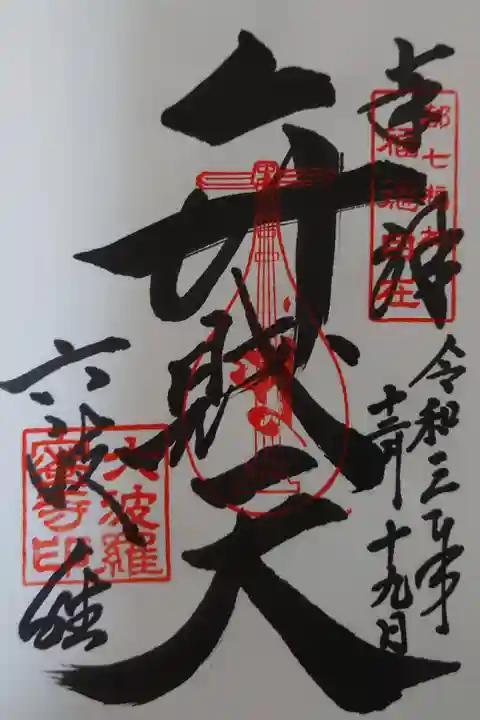 奉拝
都七福神
福徳自在
令和三年
十二月十九日
弁財天
六波羅
蜜寺印
六波羅